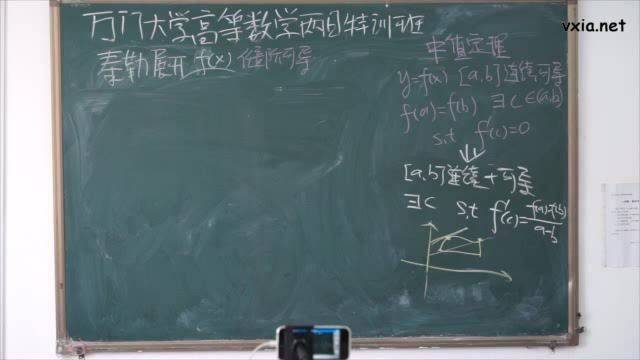 vxia.net
万门大学高等数学两日特训班
泰勒展开 f(x) 任意阶可导
中值定理
y=f(x) [a,b]连续可导
f(a)=f(b) ∃c∈(a,b)
s,t f'(c)=0
[a,b]连续+可导
∃c s,t f'(c)=\frac{f(a)-f(b)}{a-b}